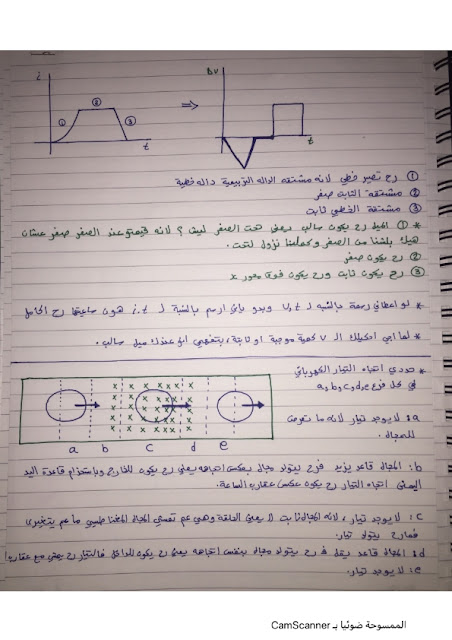 i
ΔV
① ② ③
⇒
t
t
① رح تصير خطي لانه مشتقة الداله التربيعية داله خطية
② مشتقة الثابت صفر
③ مشتقة الخطي ثابت
* ① الميل رح يكون سالب يعني تحت الصفر ليش ؟ لانه قيمتو عند الصفر صفر عشان
هيك بلشنا من الصفر وكملنا نزول لتحت.
② رح يكون صفر
③ رح يكون ثابت ورح يكون فوق محور x
* لو اعطاني رسمة بالنسبة لـ V,t وبدو ياني ارسم بالنسبة لـ i,t هون ساعتها رح
* لما ابي احكيلك الـ V كمية موجبة او ثابتة، بتفهمي انو عندك ميل سالب.
* حددي اتجاه التيار الكهربائي
في كل فرع a,b,c,d,e
a b c d e
a: لا يوجد تيار لانه ما تعرضت
للمجال.
b: المجال قاعد يزيد فرح يتولد مجال بعكس اتجاهه يعني رح يكون للخارج وباستخدام قاعدة اليد
اليمنى اتجاه التيار رح يكون عكس عقارب الساعة.
c: لا يوجد تيار، لانه المجال ثابت لا يعني الحلقة وهي عم تمشي المجال المغناطيسي ما عم يتغير
فما رح يتولد تيار.
d: المجال قاعد يقل فرح يتولد مجال بنفس اتجاهه يعني رح يكون للداخل فالتيار رح يمشي مع عقارب
e: لا يوجد تيار.
الممسوحة ضوئيا بـ CamScanner